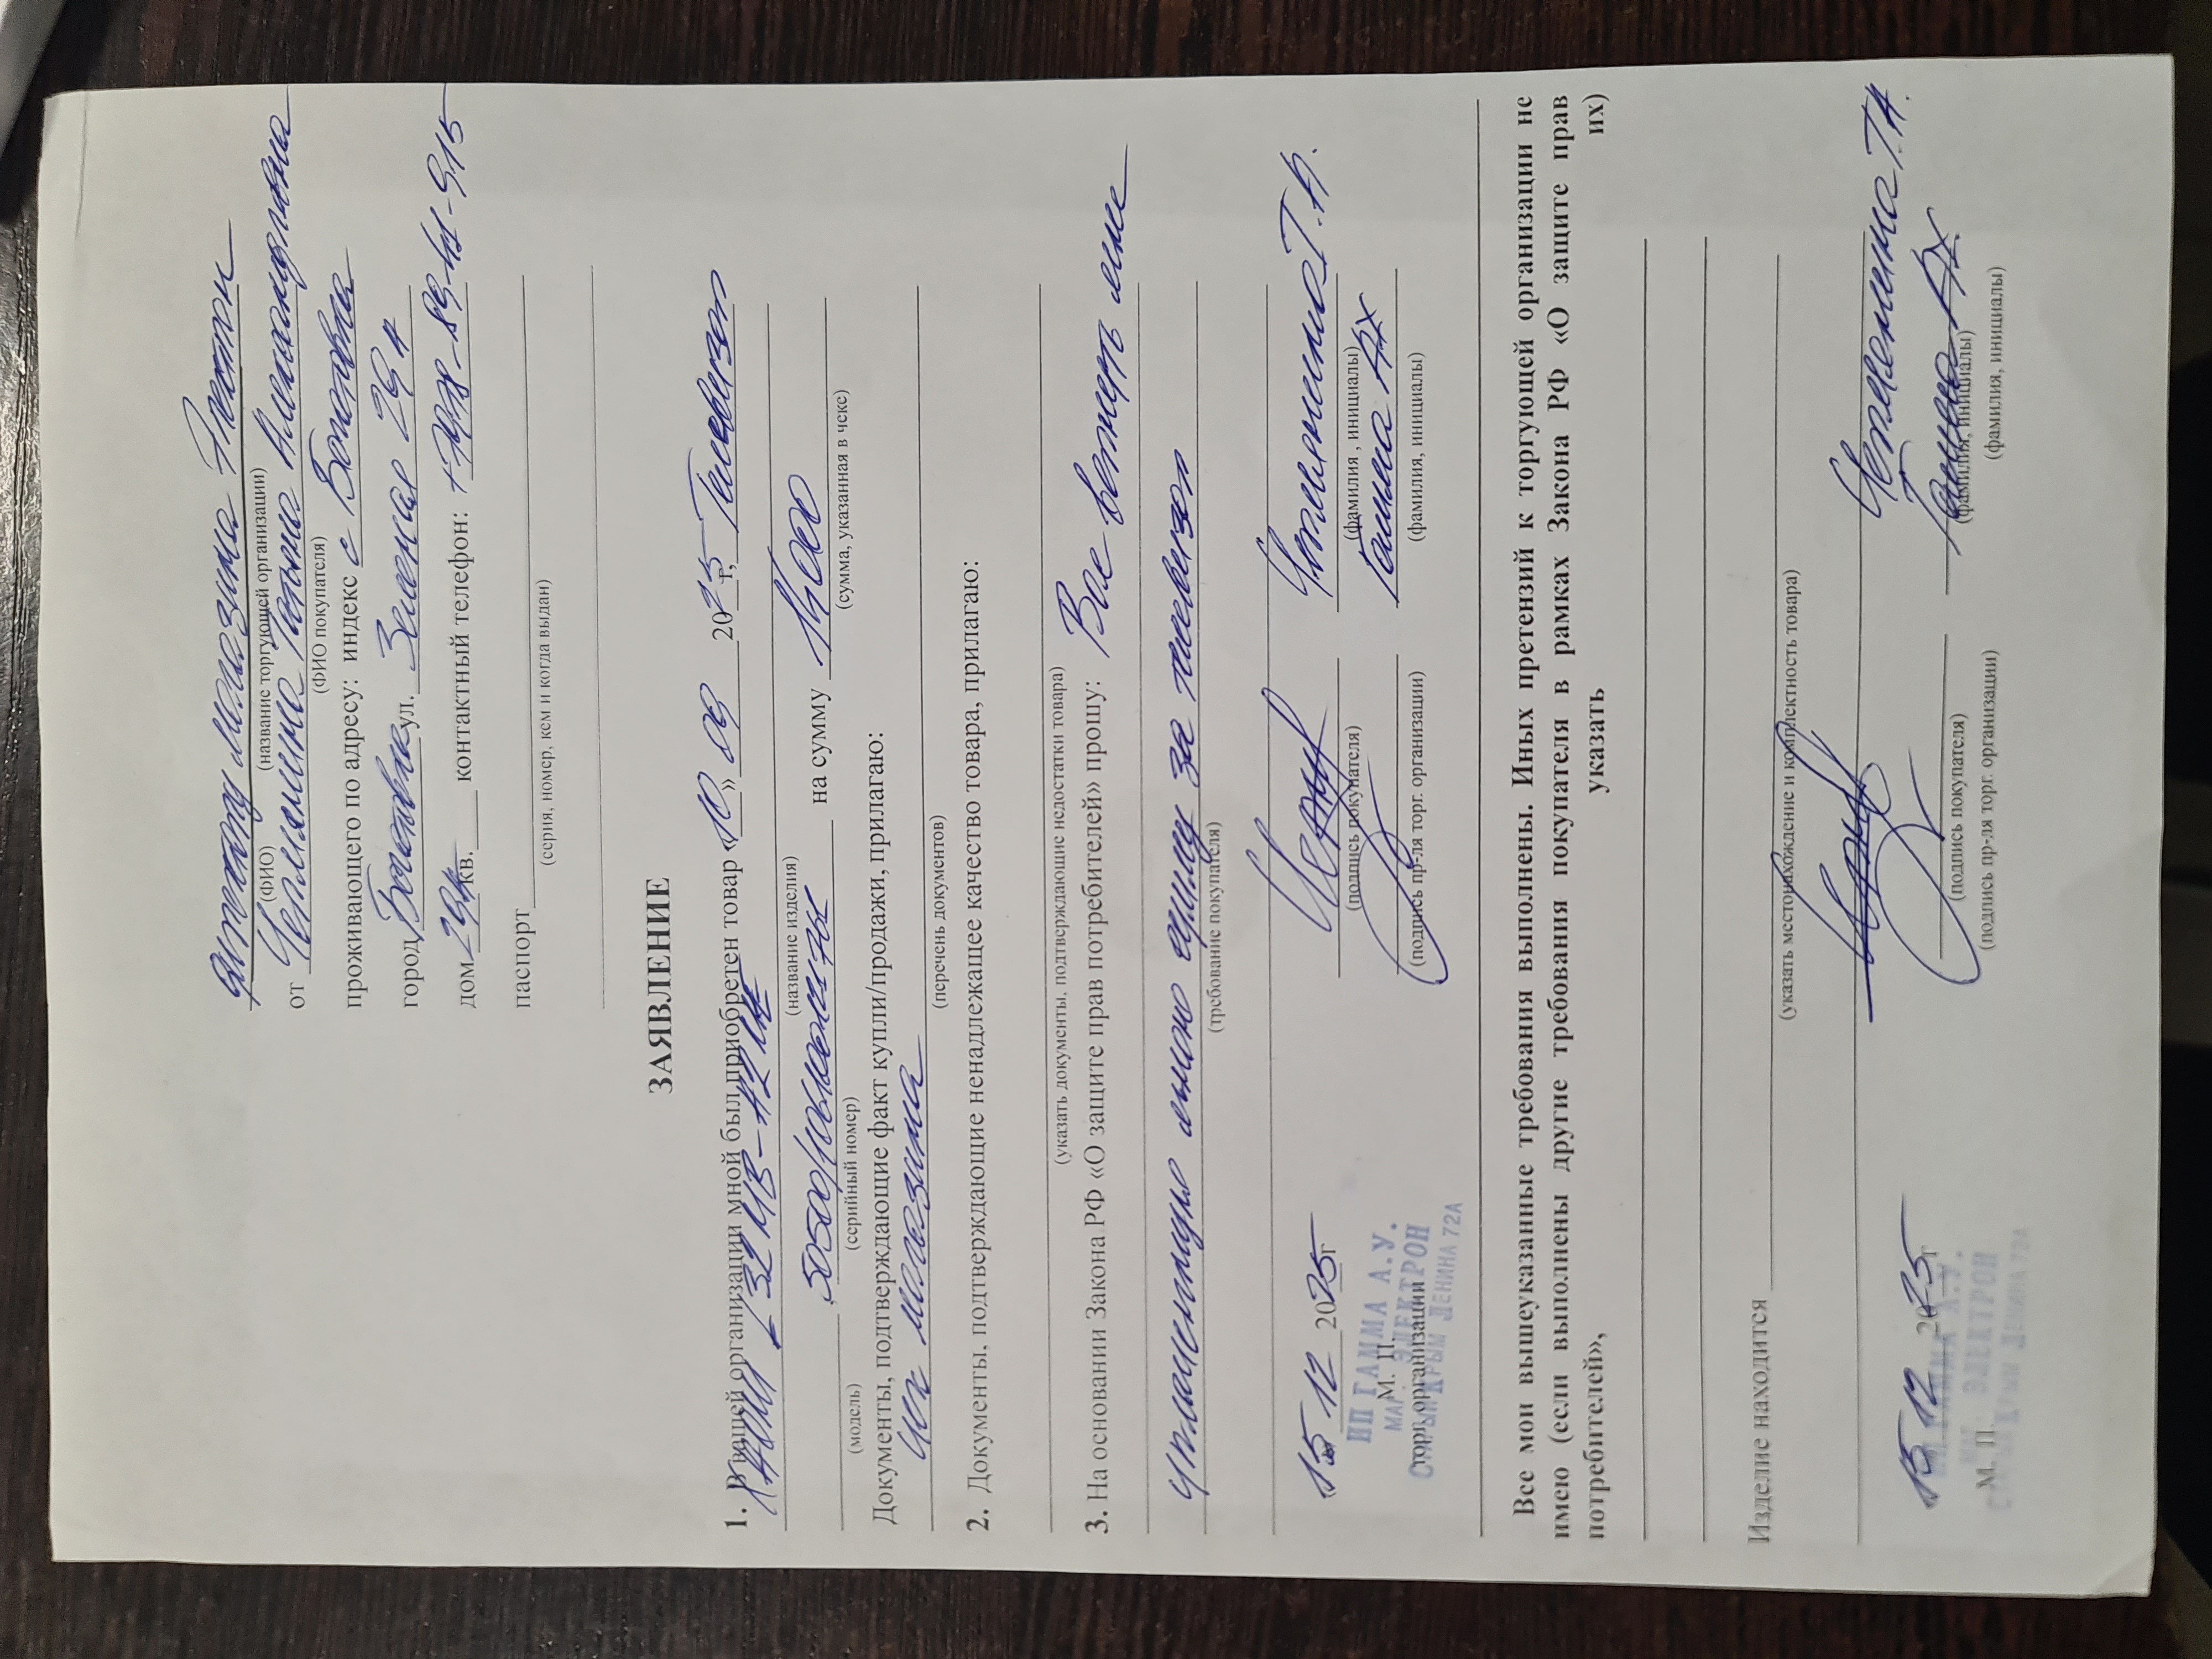 магазина Электрон
(ФИО) (название торгующей организации)
от Татьяна Александровна
(ФИО покупателя)
проживающего по адресу: индекс с
город ул. Зеленая 29 А
дом 29А кв.____ контактный телефон:
паспорт
(серия, номер, кем и когда выдан)
ЗАЯВЛЕНИЕ
1. В вашей организации мной был приобретен товар «10» 09 2025 г, Телевизор
32
(название изделия)
на сумму
(модель) (серийный номер) (сумма, указанная в чеке)
Документы, подтверждающие факт купли/продажи, прилагаю:
Чек магазина
(перечень документов)
2. Документы, подтверждающие ненадлежащее качество товара, прилагаю:
(указать документы, подтверждающие недостатки товара)
3. На основании Закона РФ «О защите прав потребителей» прошу: Вас вернуть мне
уплаченную мною сумму за телевизор
(требование покупателя)
«15» 12 2025г Т.А.
(подпись покупателя) (фамилия , инициалы)
М. П.
торг. организации
(подпись пр-ля торг. организации) (фамилия, инициалы)
ИП ГАММА А.У.
МАГ. ЭЛЕКТРОН
СТАРЫЙ КРЫМ ЛЕНИНА 72А
Все мои вышеуказанные требования выполнены. Иных претензий к торгующей организации не
имею (если выполнены другие требования покупателя в рамках Закона РФ «О защите прав
потребителей», указать их)
Изделие находится
(указать местонахождение и комплектность товара)
15 12 2025г Т.А.
(подпись покупателя) (фамилия, инициалы)
М. П.
(подпись пр-ля торг. организации) (фамилия, инициалы)
ЭЛЕКТРОН